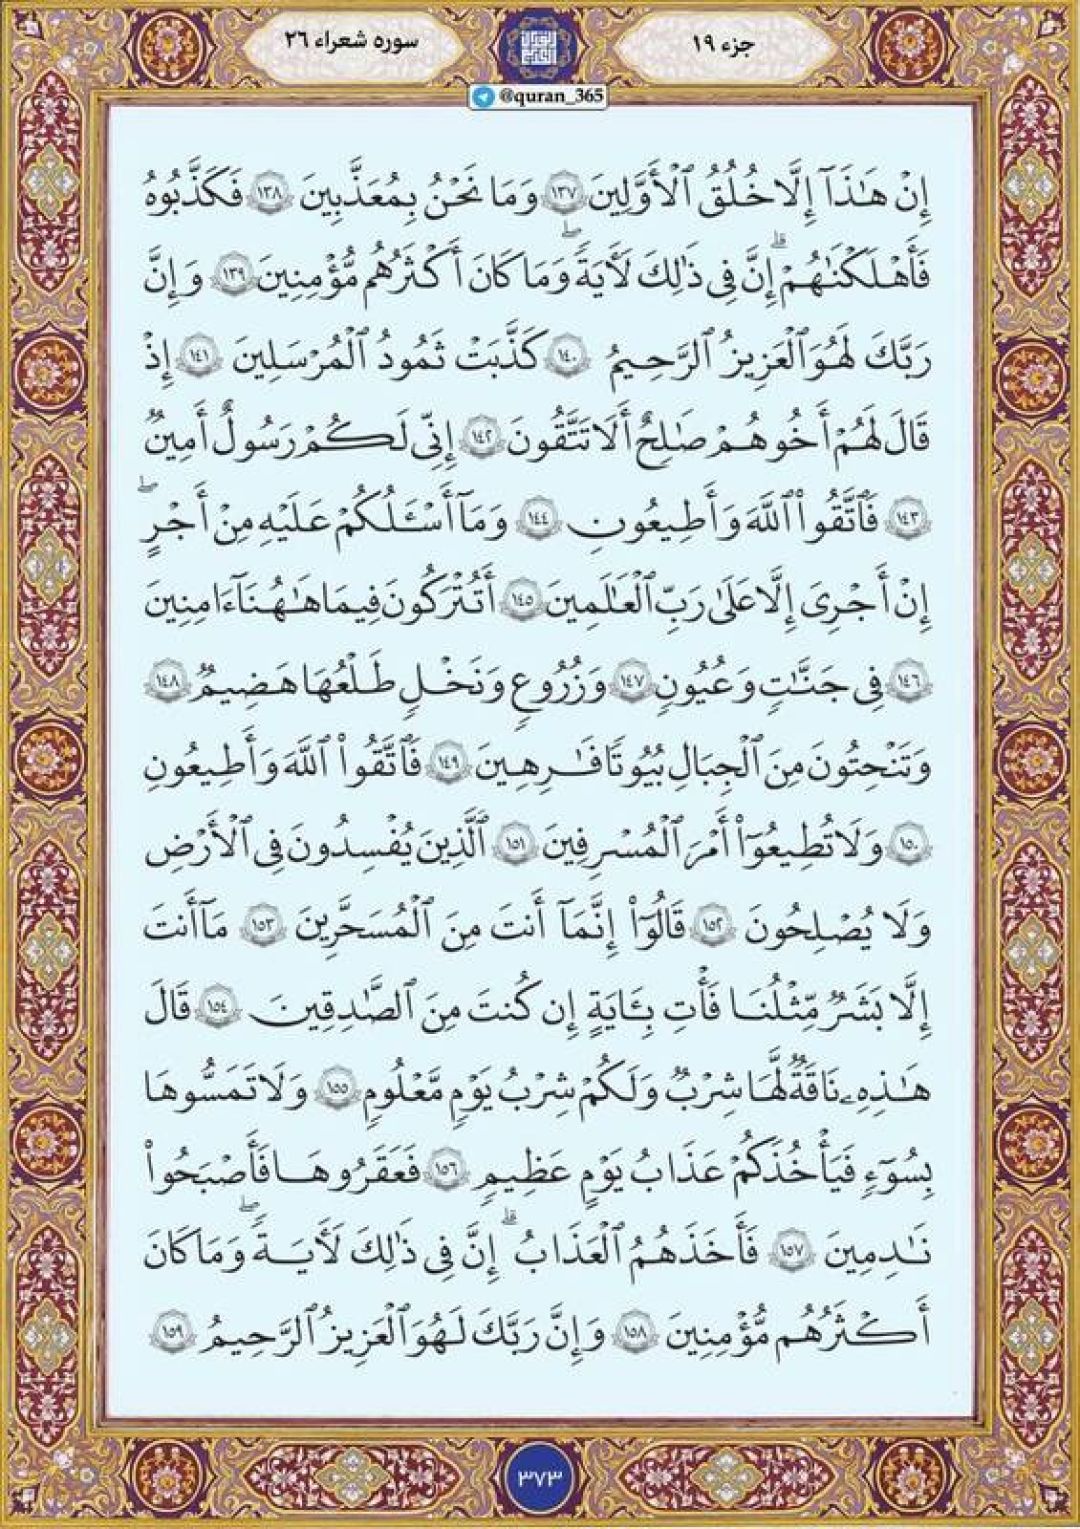 جزء ١٩
سوره شعراء ٢٦
@quran_365
إِنْ هَٰذَآ إِلَّا خُلُقُ ٱلْأَوَّلِينَ ١٣٧ وَمَا نَحْنُ بِمُعَذَّبِينَ ١٣٨ فَكَذَّبُوهُ
فَأَهْلَكْنَٰهُمْ ۗ إِنَّ فِى ذَٰلِكَ لَءَايَةً ۖ وَمَا كَانَ أَكْثَرُهُم مُّؤْمِنِينَ ١٣٩ وَإِنَّ
رَبَّكَ لَهُوَ ٱلْعَزِيزُ ٱلرَّحِيمُ ١٤٠ كَذَّبَتْ ثَمُودُ ٱلْمُرْسَلِينَ ١٤١ إِذْ
قَالَ لَهُمْ أَخُوهُمْ صَٰلِحٌ أَلَا تَتَّقُونَ ١٤٢ إِنِّى لَكُمْ رَسُولٌ أَمِينٌ
١٤٣ فَٱتَّقُوا۟ ٱللَّهَ وَأَطِيعُونِ ١٤٤ وَمَآ أَسْـَٔلُكُمْ عَلَيْهِ مِنْ أَجْرٍ ۖ
إِنْ أَجْرِىَ إِلَّا عَلَىٰ رَبِّ ٱلْعَٰلَمِينَ ١٤٥ أَتُتْرَكُونَ فِيمَا هَٰهُنَآ ءَامِنِينَ
١٤٦ فِى جَنَّٰتٍ وَعُيُونٍ ١٤٧ وَزُرُوعٍ وَنَخْلٍ طَلْعُهَا هَضِيمٌ ١٤٨
وَتَنْحِتُونَ مِنَ ٱلْجِبَالِ بُيُوتًا فَٰرِهِينَ ١٤٩ فَٱتَّقُوا۟ ٱللَّهَ وَأَطِيعُونِ
١٥٠ وَلَا تُطِيعُوٓا۟ أَمْرَ ٱلْمُسْرِفِينَ ١٥١ ٱلَّذِينَ يُفْسِدُونَ فِى ٱلْأَرْضِ
وَلَا يُصْلِحُونَ ١٥٢ قَالُوٓا۟ إِنَّمَآ أَنتَ مِنَ ٱلْمُسَحَّرِينَ ١٥٣ مَآ أَنتَ
إِلَّا بَشَرٌ مِّثْلُنَا فَأْتِ بِـَٔايَةٍ إِن كُنتَ مِنَ ٱلصَّٰدِقِينَ ١٥٤ قَالَ
هَٰذِهِۦ نَاقَةٌ لَّهَا شِرْبٌ وَلَكُمْ شِرْبُ يَوْمٍ مَّعْلُومٍ ١٥٥ وَلَا تَمَسُّوهَا
بِسُوٓءٍ فَيَأْخُذَكُمْ عَذَابُ يَوْمٍ عَظِيمٍ ١٥٦ فَعَقَرُوهَا فَأَصْبَحُوا۟
نَٰدِمِينَ ١٥٧ فَأَخَذَهُمُ ٱلْعَذَابُ ۗ إِنَّ فِى ذَٰلِكَ لَءَايَةً ۖ وَمَا كَانَ
أَكْثَرُهُم مُّؤْمِنِينَ ١٥٨ وَإِنَّ رَبَّكَ لَهُوَ ٱلْعَزِيزُ ٱلرَّحِيمُ ١٥٩
٣٧٣